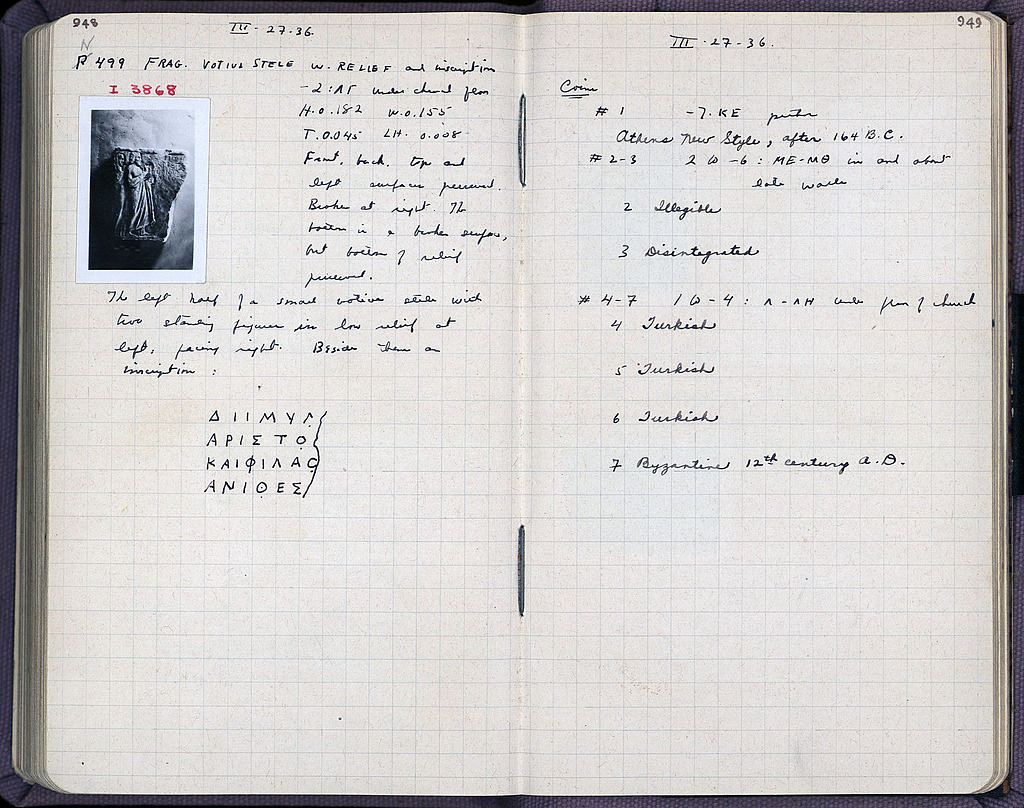 948
III · 27 · 36.
N
P 499 FRAG. VOTIVE STELE w. RELIEF and inscription
I 3868
-2 : ΛΓ under church floor
H. 0.182 W. 0.155
T. 0.045 LH. 0.008
Front, back, top and
left surfaces preserved.
Broken at right. The
bottom is a broken surface,
but bottom of relief
preserved.
The left half of a small votive stele with
two standing figures in low relief at
left, facing right. Beside them an
inscription :
Δ Ι Ι Μ Υ Λ
Α Ρ Ι Σ Τ Ο
Κ Α Ι Φ Ι Λ Α Ο
Α Ν Ι Θ Ε Σ
949
III · 27 - 36.
Coins
# 1 -7. KE
Athens New Style, after 164 B.C.
# 2-3 2 W - 6 : ME-MΘ in and about
late walls
2 Illegible
3 Disintegrated
# 4-7 1 W - 4 : Λ - ΛH under floor of church
4 Turkish
5 Turkish
6 Turkish
7 Byzantine 12th century A.D.